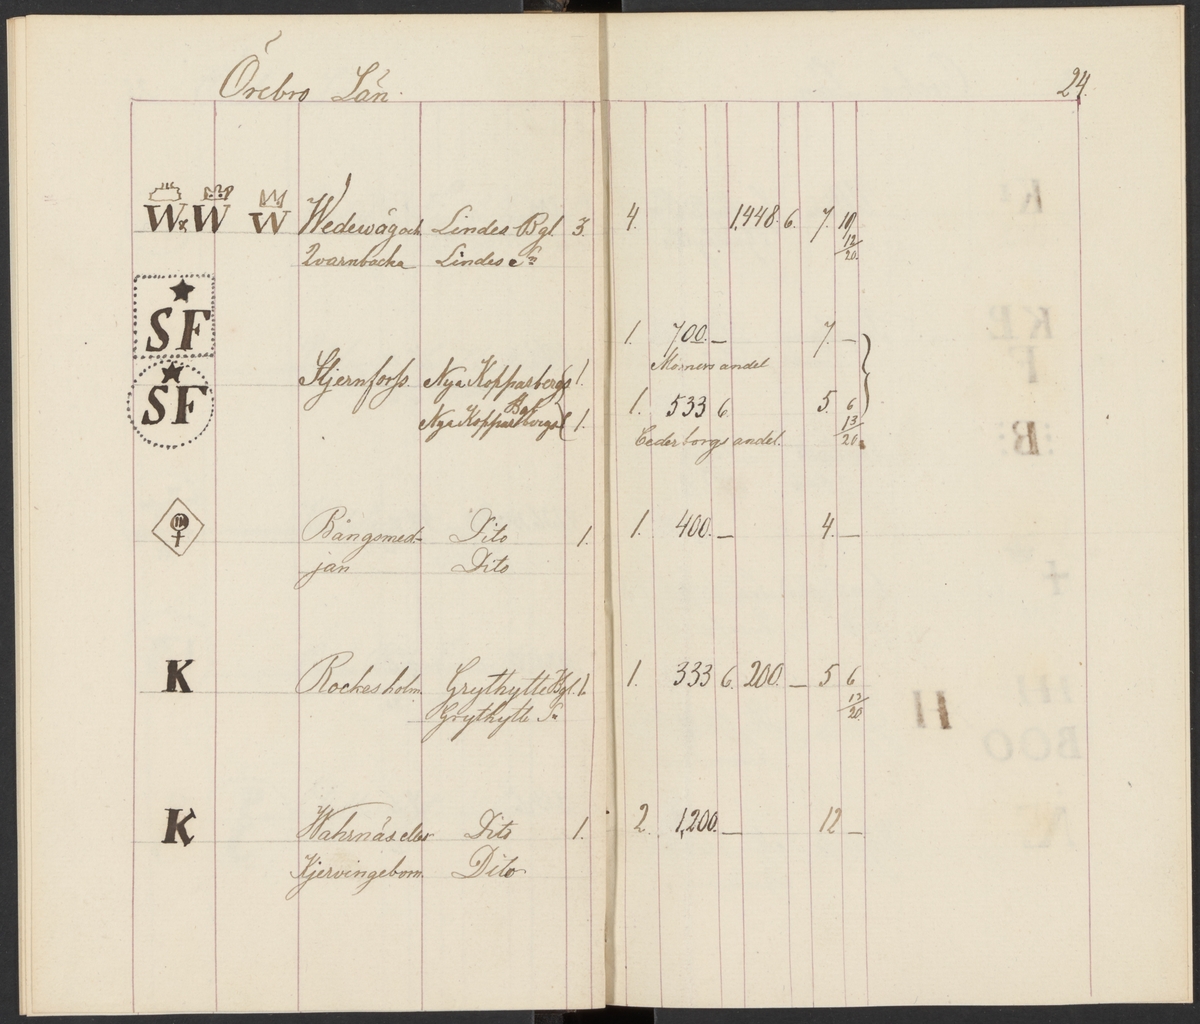 Örebro Län.
24.
W & W W Wedewåg och Lindes Bgl 3. 4. 1,448. 6. 7. 10
Qvarnbacka Lindes Sn 12/20.
SF 1. 700. — 7. —
Mörners andel
Stjernfors. Nya Kopparbergs 1.
Bgl
SF Nya Kopparbergs 1. 1. 533 6. 5. 6
13/20.
Cederborgs andel.
Bångsmed- Dito 1. 1. 400. — 4. —
jan Dito
K Rockesholm. Grythytte Bgl. 1. 1. 333 6. 200. — 5 6
Grythytte Sn 13/20.
K Wahrnäs eller Dito 1. 2. 1,200. — 12 —
Kjervingeborn. Dito